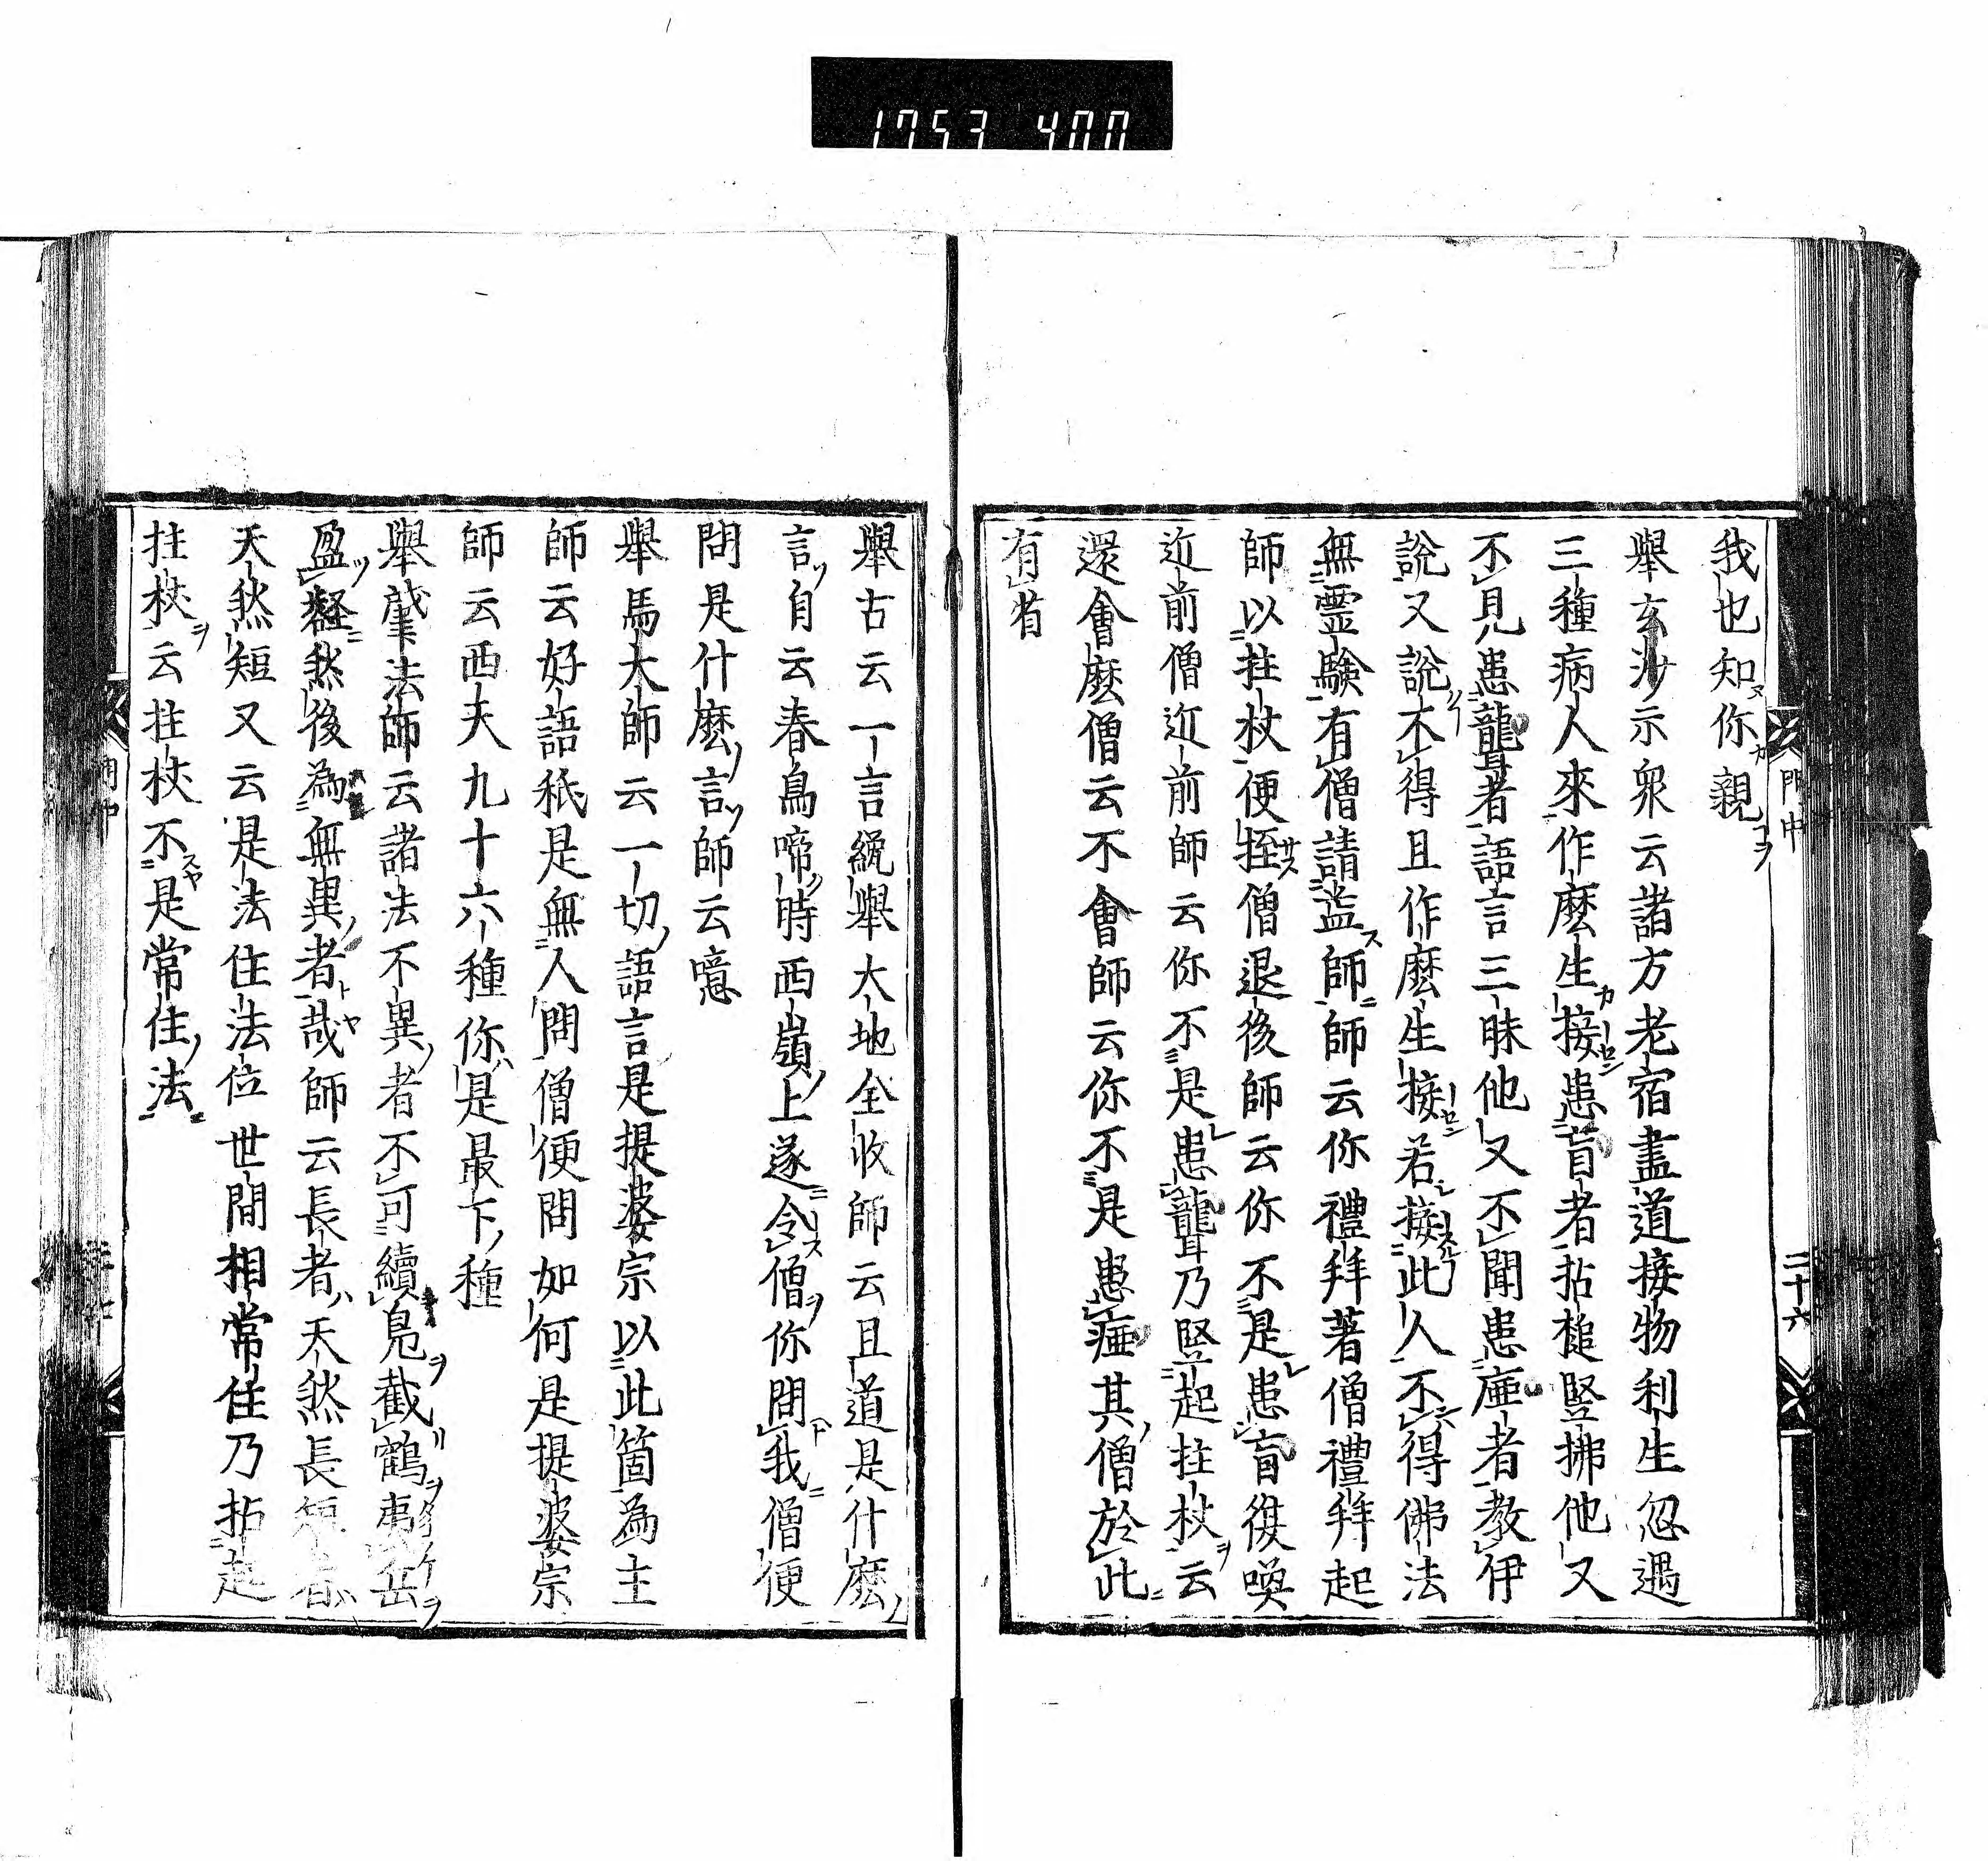 1753 400
門中
二十六
我也知你親
舉玄沙示衆云諸方老宿盡道接物利生忽遇
三種病人來作麼生接患盲者拈槌竪拂他又
不見患聾者語言三昧他又不聞患瘂者教伊
說又說不得且作麼生接若接此人不得佛法
無霊驗有僧請益師師云你禮拜著僧禮拜起
師以拄杖便挃僧退後師云你不是患盲復喚
近前僧近前師云你不是患聾乃竪起拄杖云
還會麼僧云不會師云你不是患瘂其僧於此
有省
舉古云一言纔舉大地全收師云且道是什麼
言自云春鳥啼時西嶺上遂令僧你問我僧便
問是什麼言師云噫
舉馬大師云一切語言是提婆宗以此箇為主
師云好語秖是無人問僧便問如何是提婆宗
師云西天九十六種你是最下種
舉肇法師云諸法不異者不可續鳧截鶴夷岳
盈壑然後為無異者哉師云長者天然長短者
天然短又云是法住法位世間相常住乃拈起
拄杖云拄杖不是常住法